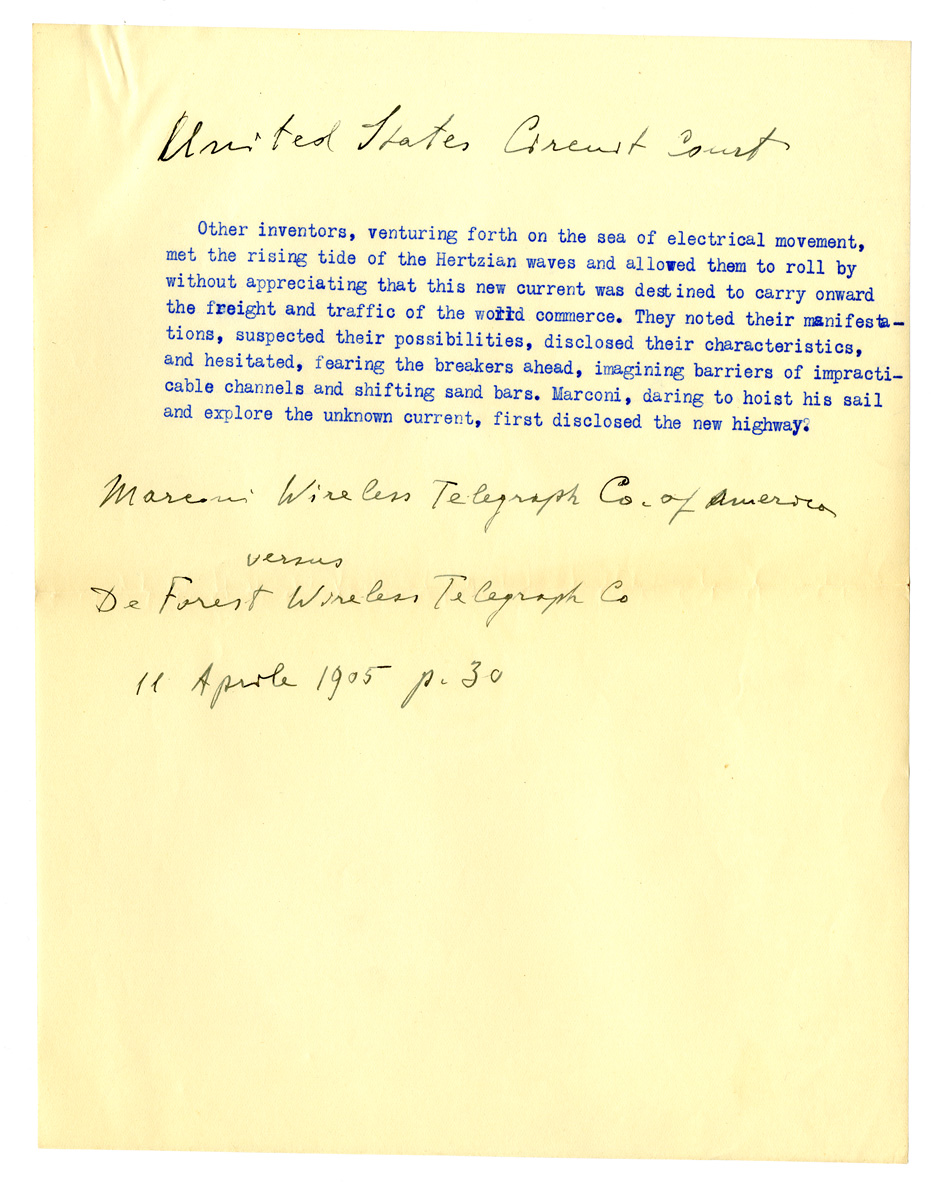 United States Circuit Court
Other inventors, venturing forth on the sea of electrical movement,
met the rising tide of the Hertzian waves and allowed them to roll by
without appreciating that this new current was destined to carry onward
the freight and traffic of the world commerce. They noted their manifesta-
tions, suspected their possibilities, disclosed their characteristics,
and hesitated, fearing the breakers ahead, imagining barriers of impracti-
cable channels and shifting sand bars. Marconi, daring to hoist his sail
and explore the unknown current, first disclosed the new highway.
Marconi Wireless Telegraph Co. of America
versus
De Forest Wireless Telegraph Co
11 Aprile 1905 p. 30